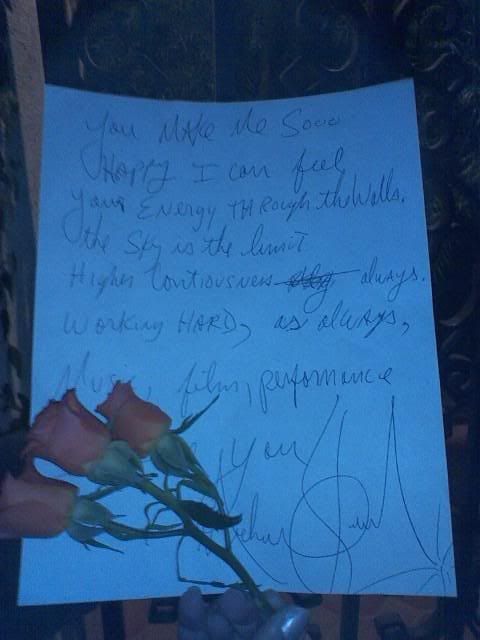 You MAKe Me Sooo
HAPPY I can feel
your ENERGY THROUGH the Walls.
the SKy is the limit
Higher Contiousness always.
WORKing HARD, as always,
Music, film, performance
You